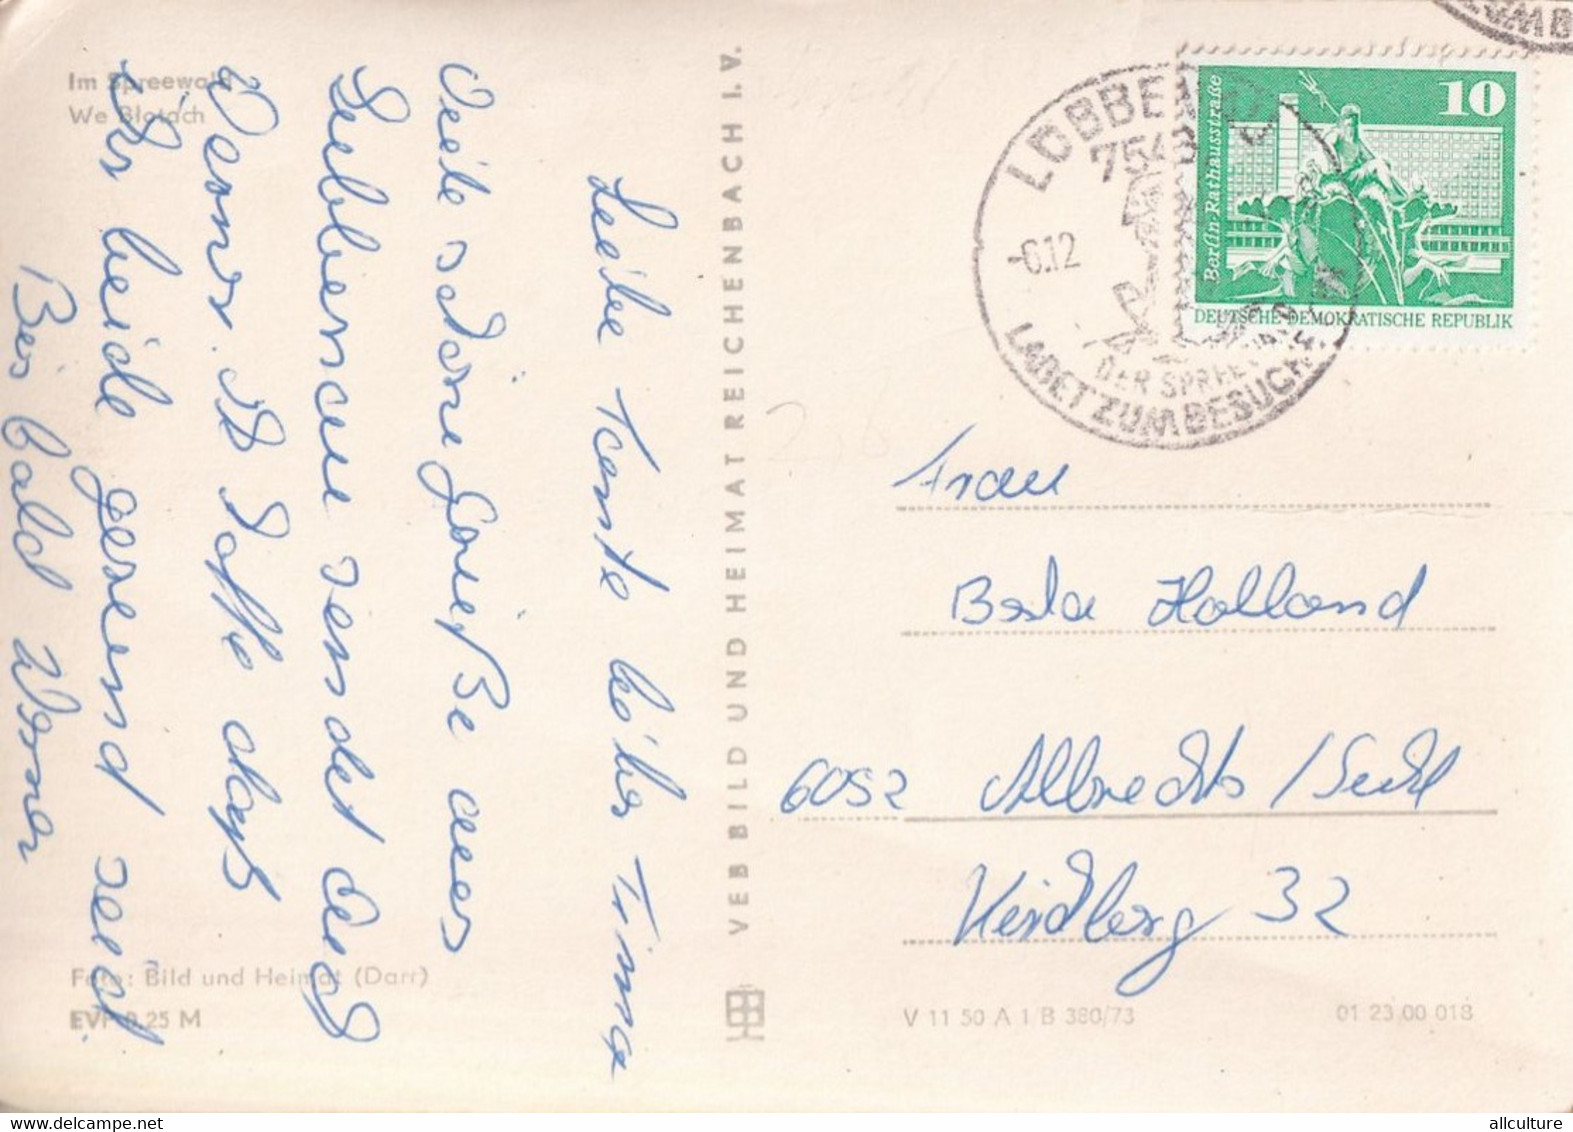 Im Spreewald
We Blotach
Liebe Tante liebe Irma
Viele schöne Grüße aus
Lübbenau sendet Euch
Werner. Ich hoffe daß
Ihr beide gesund seid
Bis bald Werner
Foto: Bild und Heimat (Darr)
EVP 0.25 M
VEB BILD UND HEIMAT REICHENBACH I. V.
LÜBBENAU
754
-6.12
DER SPREEWALD
LADET ZUM BESUCH
10
Berlin-Rathausstraße
DEUTSCHE DEMOKRATISCHE REPUBLIK
Frau
Holland
6052 Albrechts / Suhl
32
V 11 50 A 1 B 380/73
01 23 00 018
allculture